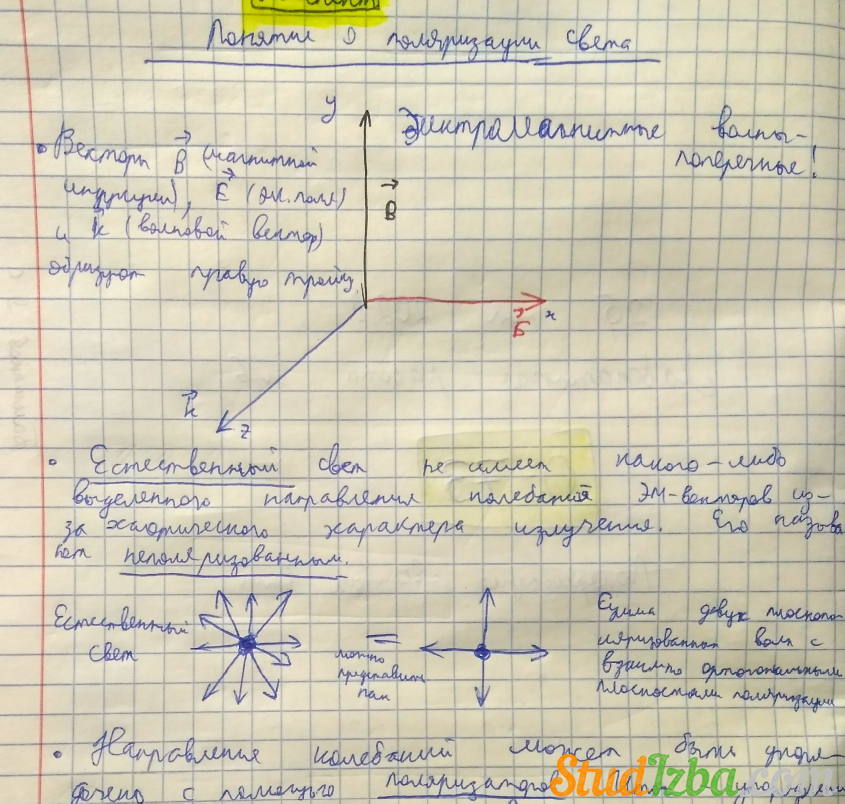 Понятие о поляризации света
y
Электромагнитные волны-
поперечные!
• Векторы B (магнитной
индукции), E (эл. поля)
и k (волновой вектор)
образуют правую тройку
B
E x
k
z
• Естественный свет не имеет какого-либо
выделенного направления колебаний ЭМ-векторов из-
за хаотического характера излучения. Его называ
ют неполяризованным.
Естественный
свет
=
можно
представить
как
Сумма двух плоскопо
ляризованных волн с
взаимно ортогональными
плоскостями поляризации
• Направления колебаний может быть упоря-
дочено с помощью поляризаторов
StudIzba.com